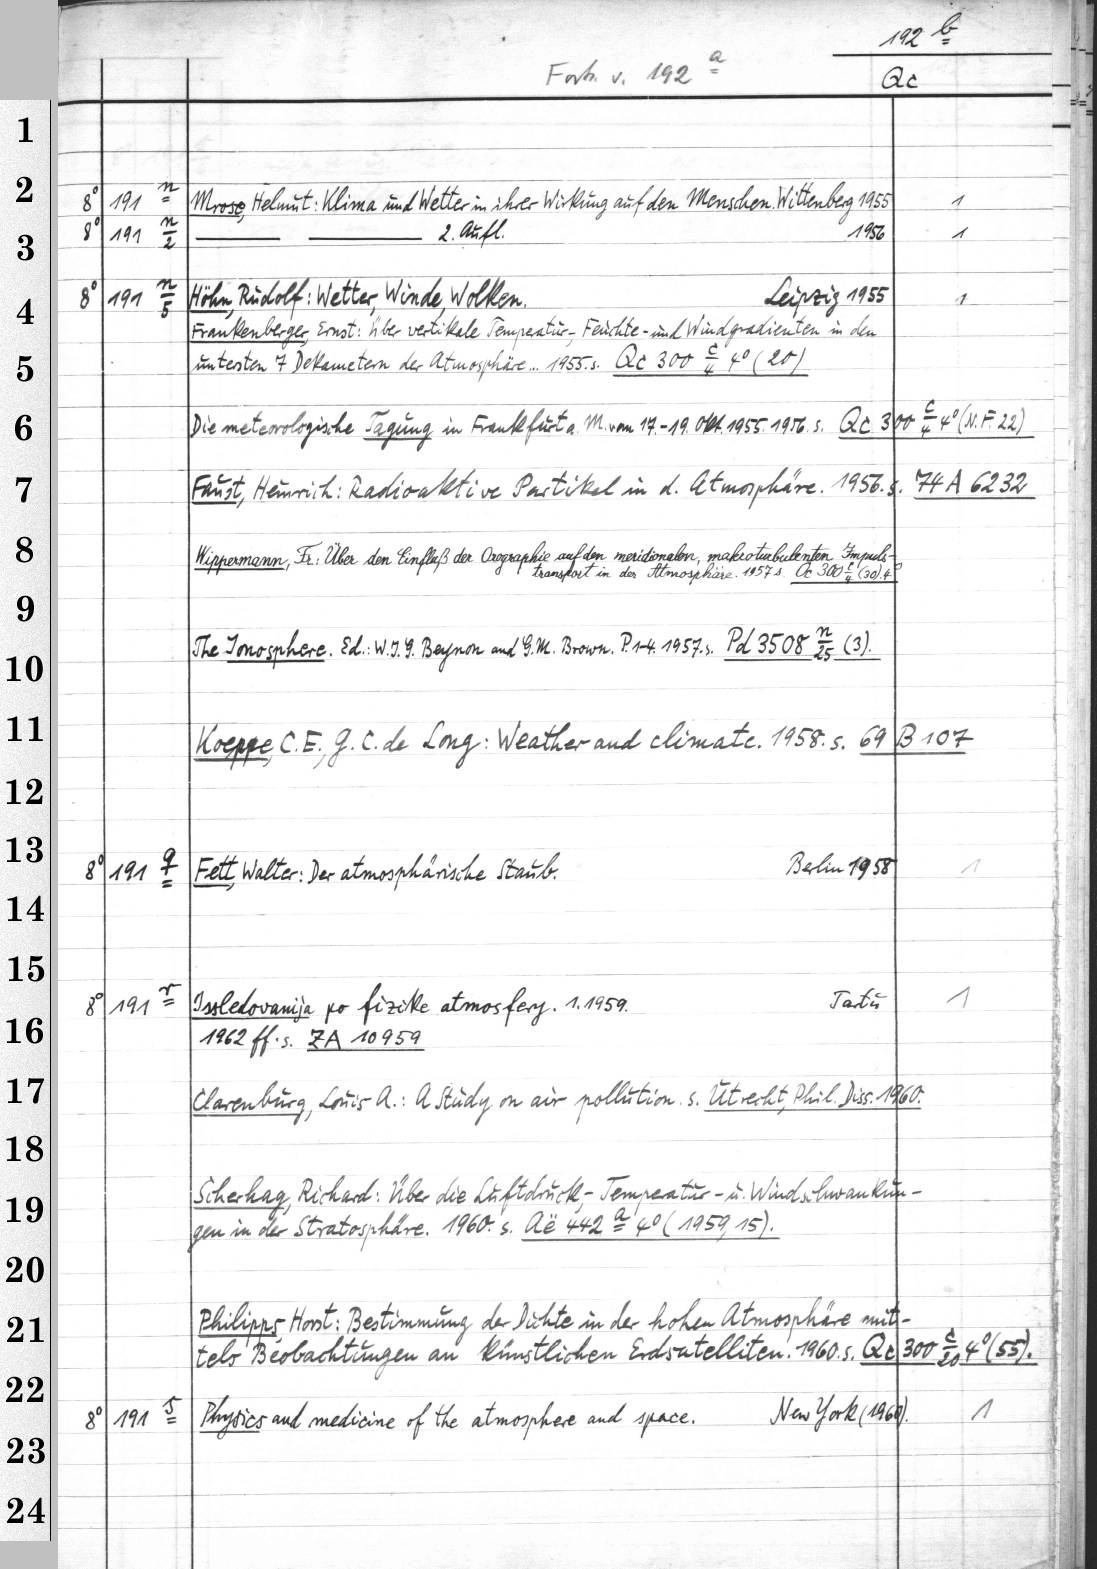 192 b
Forts. v. 192 a
Qc
1
2
8° 191 n Mrose, Helmut: Klima und Wetter in ihrer Wirkung auf den Menschen. Wittenberg 1955 1
3
8° 191 n/2 ——— ——— 2. Aufl. 1956 1
4
8° 191 n/5 Höhn, Rudolf: Wetter, Winde, Wolken. Leipzig 1955 1
Frankenberger, Ernst: Über vertikale Temperatur-, Feuchte- und Windgradienten in den
5
untersten 7 Dekametern der Atmosphäre... 1955. s. Qc 300 c/4 4° (20)
6
Die meteorologische Tagung in Frankfurt a. M. vom 17.-19. Okt. 1955. 1956. s. Qc 300 c/4 4° (N.F. 22)
7
Faust, Heinrich: Radioaktive Partikel in d. Atmosphäre. 1956. s. 74 A 6232
8
Wippermann, Fr.: Über den Einfluß der Orographie auf den meridionalen, makroturbulenten Impuls-
transport in der Atmosphäre. 1957 s. Qc 300 c/4 (30). 4°
9
10
The Ionosphere. Ed.: W.J.G. Beynon and G.M. Brown. P. 1-4. 1957. s. Pd 3508 n/25 (3).
11
Koeppe, C.E., G.C. de Long: Weather and climate. 1958. s. 69 B 107
12
13
8° 191 q Fett, Walter: Der atmosphärische Staub. Berlin 1958 1
14
15
8° 191 r Issledovanija po fizike atmosfery. 1. 1959. Tartu 1
16
1962 ff. s. ZA 10959
17
Clarenburg, Louis A.: A Study on air pollution. s. Utrecht, Phil. Diss. 1960.
18
19
Scherhag, Richard: Über die Luftdruck-, Temperatur- u. Windschwankun-
gen in der Stratosphäre. 1960. s. Aë 442 a 4° (1959, 15).
20
21
Philipps, Horst: Bestimmung der Dichte in der hohen Atmosphäre mit-
tels Beobachtungen an künstlichen Erdsatelliten. 1960. s. Qc 300 c/20 4° (55).
22
8° 191 s Physics and medicine of the atmosphere and space. New York (1960). 1
23
24